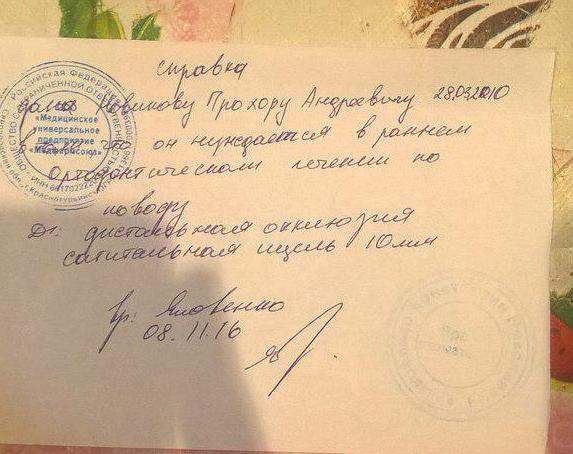 справка
Дана Новикову Прохору Андреевичу 28.03.2010
в том, что он нуждается в раннем
Ортодонтическом лечении по
поводу
Ds: дистальная окклюзия
сагитальная щель 10мм
вр: Яковенко
08.11.16
Российская Федерация
ОБЩЕСТВО С ОГРАНИЧЕННОЙ ОТВЕТСТВЕННОСТЬЮ
«Медицинское
универсальное
предприятие
«Медфармсоюз»